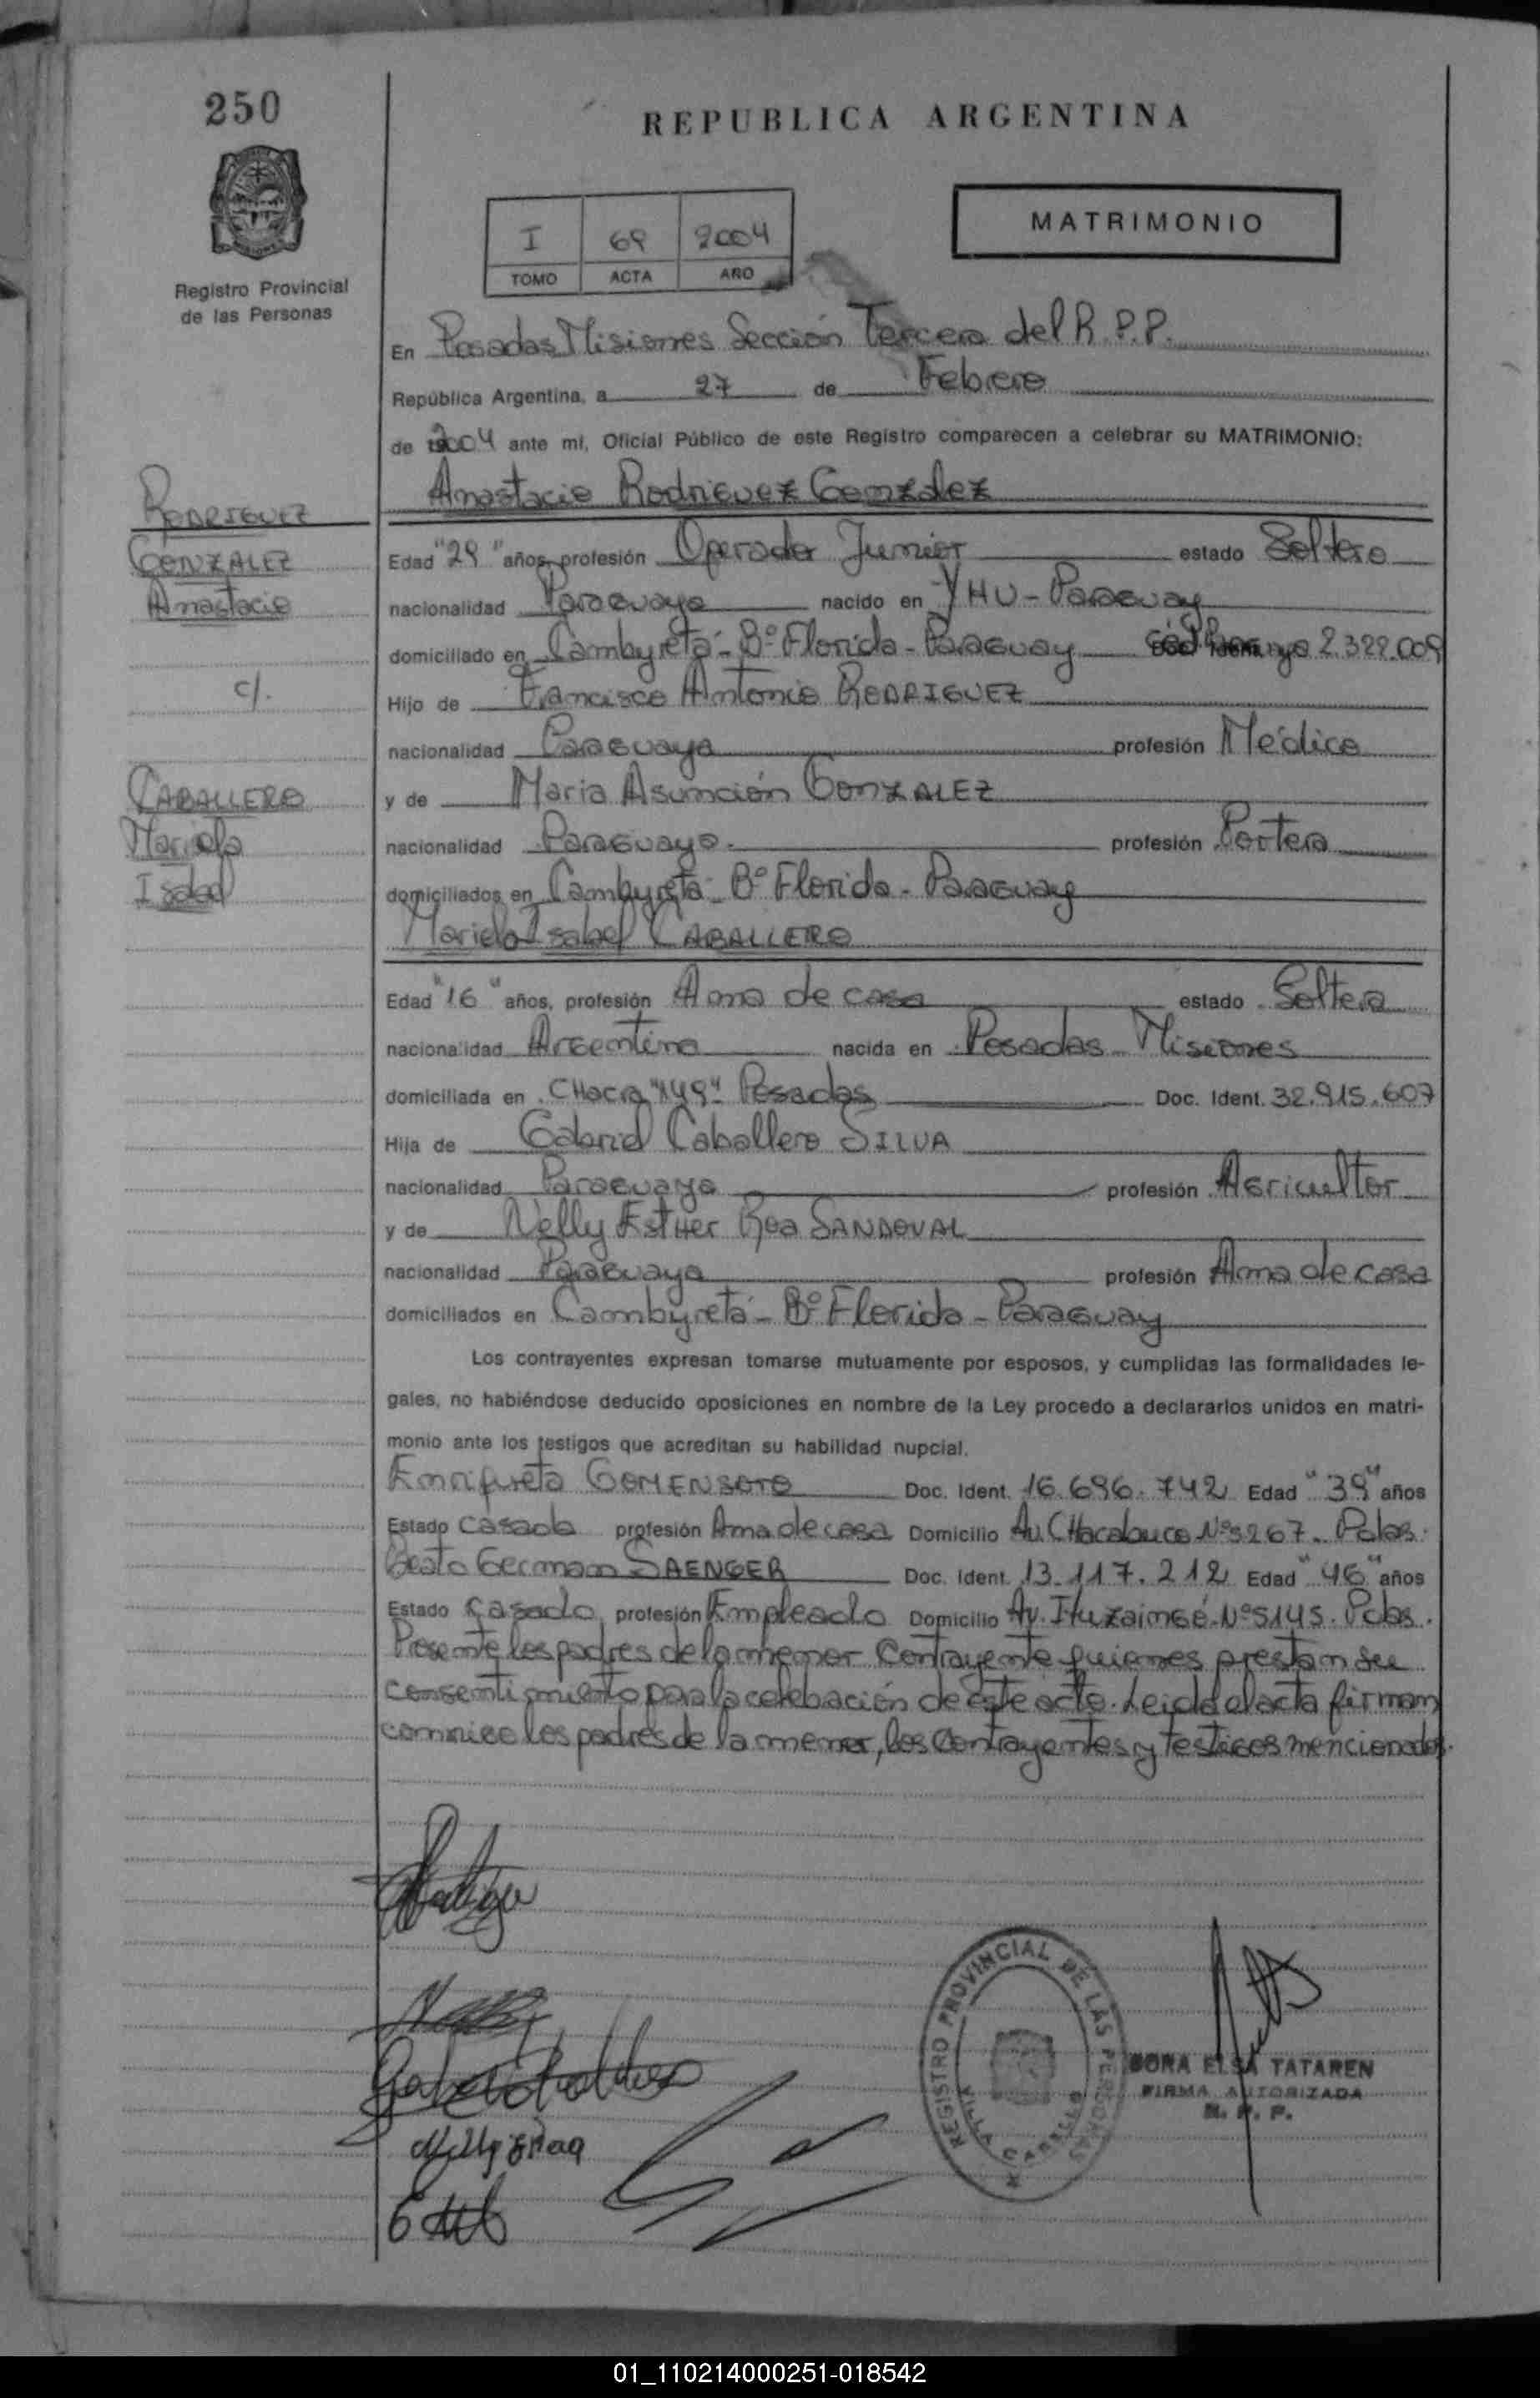 250
REPUBLICA ARGENTINA
MATRIMONIO
I 69 2004
TOMO ACTA AÑO
Registro Provincial
de las Personas
En Posadas Misiones Sección Tercera del R.P.P.
República Argentina, a 27 de Febrero
de 2004 ante mí, Oficial Público de este Registro comparecen a celebrar su MATRIMONIO:
Anastacio Rodriguez Gonzalez
RODRIGUEZ
GONZALEZ
Anastacio
c/.
CABALLERO
Mariela
Isabel
Edad "29" años, profesión Operador Junior estado Soltero
nacionalidad Paraguaya nacido en YHU - Paraguay
domiciliado en Cambyretá - Bº Florida - Paraguay 2.322.009
Hijo de Francisco Antonio RODRIGUEZ
nacionalidad Paraguaya profesión Médico
y de Maria Asunción GONZALEZ
nacionalidad Paraguaya profesión Portera
domiciliados en Cambyretá - Bº Florida - Paraguay
Mariela Isabel CABALLERO
Edad "16" años, profesión Ama de casa estado Soltera
nacionalidad Argentina nacida en Posadas Misiones
domiciliada en CHacra "149" Posadas Doc. Ident. 32.915.607
Hija de Gabriel Caballero SILVA
nacionalidad Paraguaya profesión Agricultor
y de Nelly EstHer Roa SANDOVAL
nacionalidad Paraguaya profesión Ama de casa
domiciliados en Cambyretá - Bº Florida - Paraguay
Los contrayentes expresan tomarse mutuamente por esposos, y cumplidas las formalidades le-
gales, no habiéndose deducido oposiciones en nombre de la Ley procedo a declararlos unidos en matri-
monio ante los testigos que acreditan su habilidad nupcial.
Enriqueta GOMENSORO Doc. Ident. 16.696.742 Edad "39" años
Estado casada profesión Ama de casa Domicilio Av. CHacabuco Nº5267. Pdas.
Beato German SAENGER Doc. Ident. 13.117.212 Edad "46" años
Estado casado profesión Empleado Domicilio Av. Ituzaingó - Nº5145. Pdas.
Presente los padres de la menor Contrayente quienes prestan su
consentimiento para la celebación de este acto. Leida el acta firman
conmigo los padres de la menor, los Contrayentes y testigos mencionados.
REGISTRO PROVINCIAL DE LAS PERSONAS
DORA ELSA TATAREN
FIRMA AUTORIZADA
R. P. P.
01_110214000251-018542